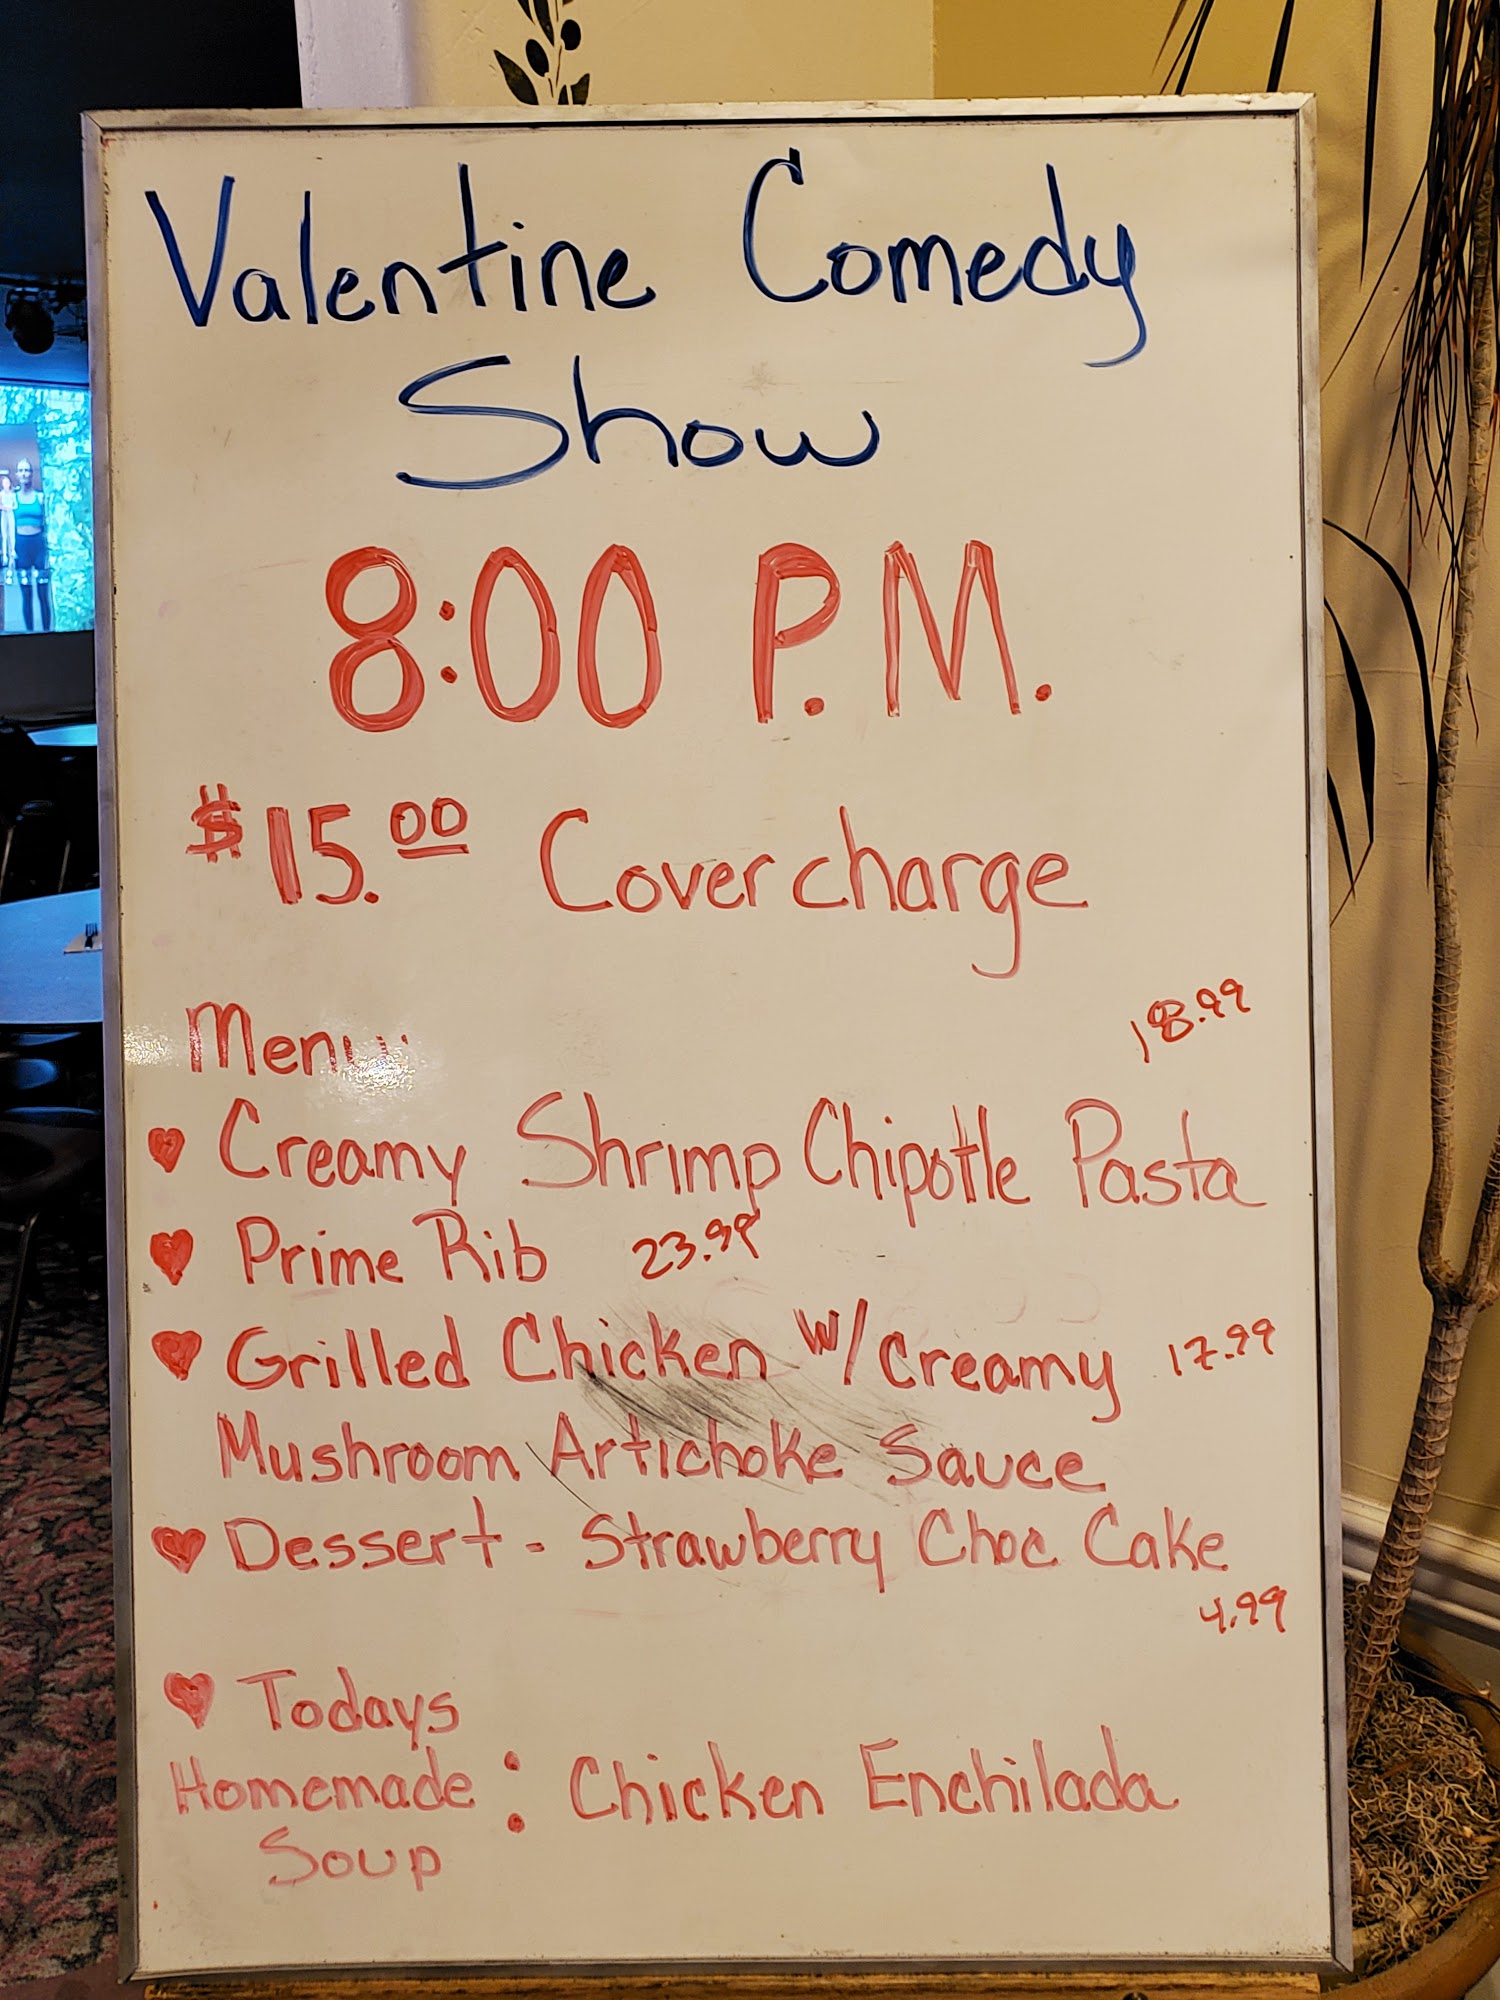 Valentine Comedy
Show
8:00 P.M.
$15.00 Cover charge
Menu:
18.99
Creamy Shrimp Chipotle Pasta
Prime Rib 23.99
Grilled Chicken w/ Creamy 17.99
Mushroom Artichoke Sauce
Dessert - Strawberry Choc Cake
4.99
Todays
Homemade : Chicken Enchilada
Soup